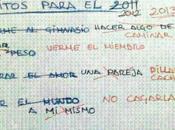 ITOS PARA EL 2011 2012 2013
IRME AL GIMNASIO HACER ALGO DE CAMINAR
PESO VERME EL MIEMBRO
RAR EL AMOR UNA PAREJA
AR EL MUNDO A MI MISMO NO CAGARLA